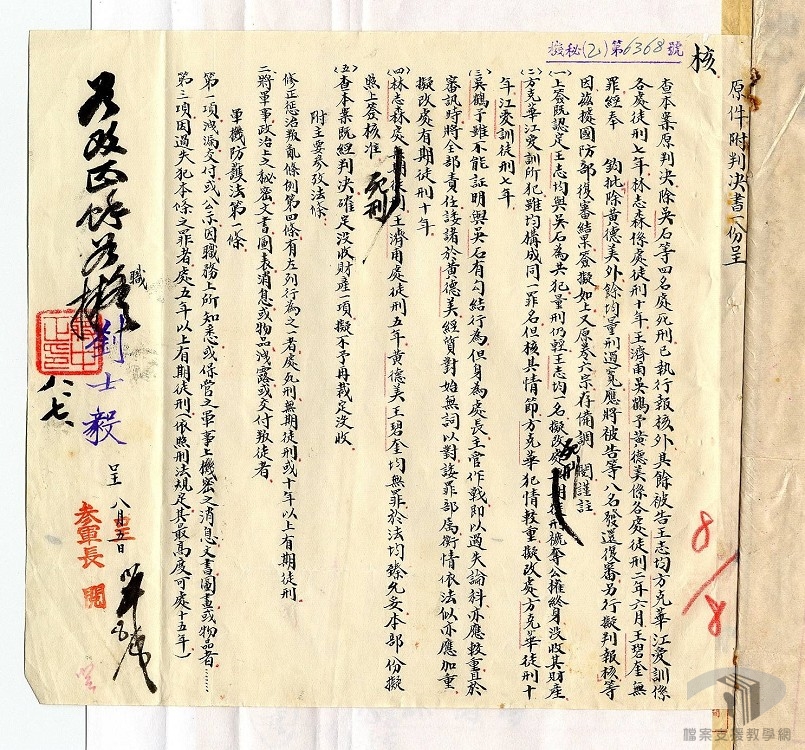 原件附判決書一份呈
核
核秘(乙)第6368號
查本案原判決除吳石等四名處死刑已執行報核外其餘被告王志均方克華江愛訓係
各處徒刑七年林志森係處徒刑十年王濟甫吳鶴予黃德美係各處徒刑二年六月王碧奎無
罪經奉 鈞批除黃德美外餘均量刑過寬應將被告等八名發還復審另行擬判報核等
因茲據國防部復審結果簽擬如上又原卷六宗存備調閱謹註
(一)上簽既認定王志均與吳石為共犯量刑仍輕王志均一名擬改處死刑褫奪公權終身沒收其財產
(二)方克華江愛訓所犯雖均構成同一罪名但核其情節方克華犯情較重擬改處方克華徒刑十
年江愛訓徒刑七年
(三)吳鶴予雖不能証明與吳石有勾結行為但身為處長主官作戰即以過失論科亦應較重且於
審訊時將全部責任諉諸於黃德美經質對始無詞以對諉罪部屬衡情依法似亦應加重
擬改處有期徒刑十年
(四)林志森處死刑王濟甫處徒刑五年黃德美王碧奎均無罪於法均臻允妥本部份擬
照上簽核准
(五)查本案既經判決確定沒收財產一項擬不予再裁定沒收
附主要參攷法條
修正懲治叛亂條例第四條有左列行為之一者處死刑無期徒刑或十年以上有期徒刑
二將軍事政治上之秘密文書圖表消息或物品洩露或交付叛徒者
軍機防護法第一條
第一項洩漏交付或公示因職務上所知悉或保管之軍事上機密之消息文書圖畫或物品者……
第三項因過失犯本條之罪者處五年以上有期徒刑(依照刑法規定其最高度可處十五年)
職
劉士毅
呈八月五日
參軍長 閱
八、七、
8/8
檔案支援教學網